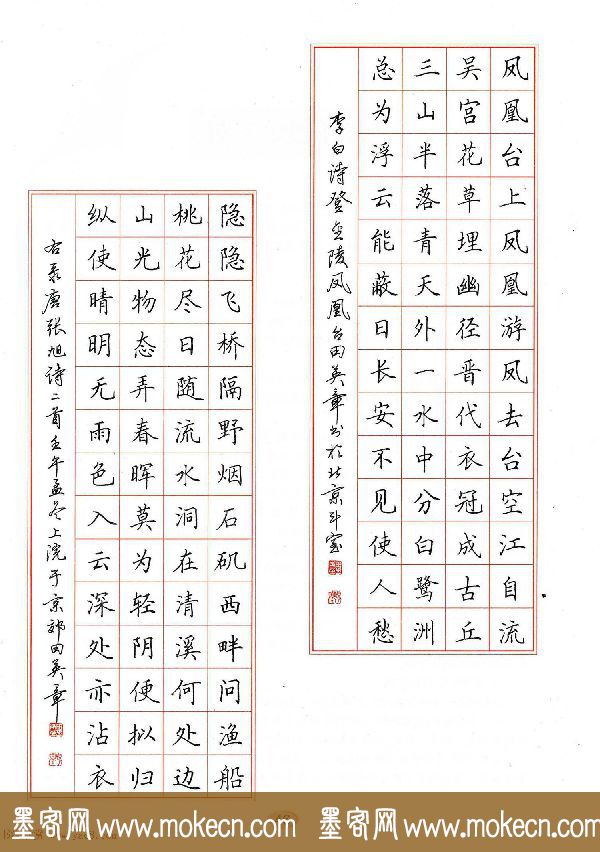 凤凰台上凤凰游凤去台空江自流
吴宫花草埋幽径晋代衣冠成古丘
三山半落青天外一水中分白鹭洲
总为浮云能蔽日长安不见使人愁
李白诗登金陵凤凰台田英章书于北京斗室
隐隐飞桥隔野烟石矶西畔问渔船
桃花尽日随流水洞在清溪何处边
山光物态弄春晖莫为轻阴便拟归
纵使晴明无雨色入云深处亦沾衣
右录唐张旭诗二首壬午孟冬上浣于京郊田英章
墨客网 www.mokecn.com 墨客网 www.mokecn.com